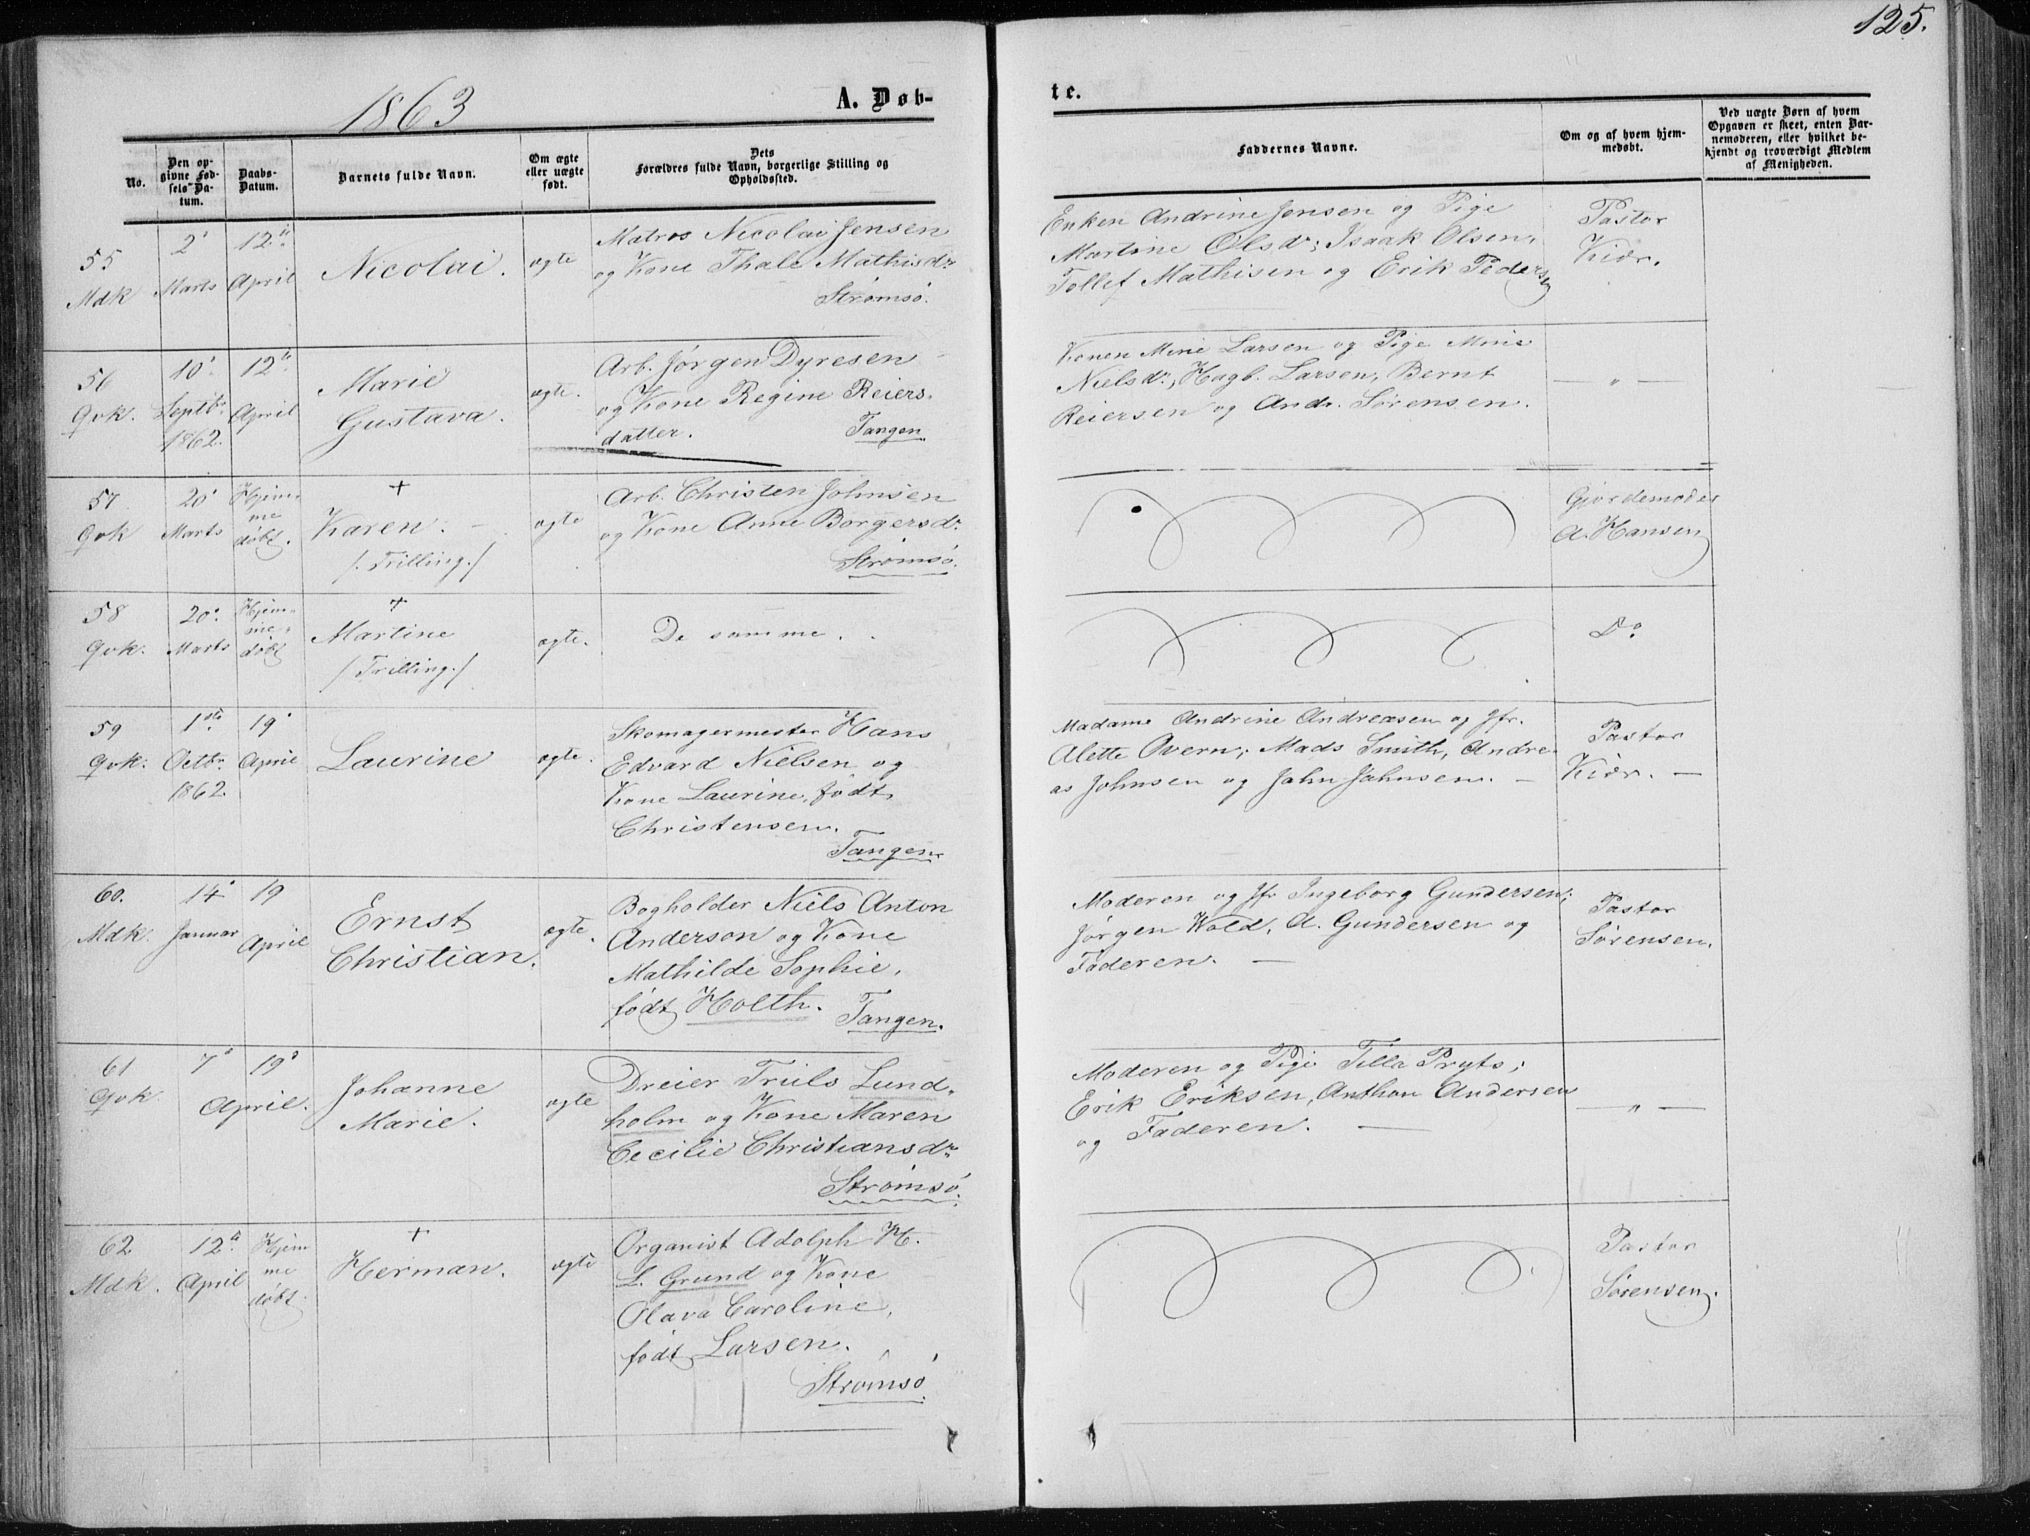 125.
1863
A. Døb-
te.
No.
Den op-
givne Fød-
sels Da-
tum.
Daabs-
Datum.
Barnets fulde Navn.
Om ægte
eller uægte
født.
Dets
Forældres fulde Navn, borgerlige Stilling og
Opholdssted.
Faddernes Navne.
Om og af hvem hjem-
medøbt.
Ved uægte Børn af hvem
Opgaven er skeet, enten Bar-
nemoderen, eller hvilket be-
kjendt og troværdigt Medlem
af Menigheden.
55
Mdk
2'
Marts
12te
April
Nicolai.
ægte
Matros Nicolai Jensen
og Kone Thale Mathisdr.
Strømsø.
Enken Andrine Jensen og Pige
Martine Olsdr; Isaak Olsen,
Tollef Mathisen og Erik Pedersen
Pastor
Kiær.
56
Qvk.
10'
Septbr.
1862.
12te
April
Marie
Gustava.
ægte.
Arb. Jørgen Dyresen
og Kone Regine Reiers-
datter. Tangen
Konen Mine Larsen og Pige Mine
Nielsdr, Hagb. Larsen, Bernt
Reiersen og Andr. Sørensen.
— " —
57
Qvk
20'
Marts
Hjem-
me
døbt.
+
Karen.
/: Trilling :/
ægte
Arb. Christen Johnsen
og Kone Anne Borgersdr.
Strømsø.
Gjordemoder
A. Hansen
58
Qvk.
20'
Marts
Hjem-
me-
døbt
+
Martine
/: Trilling :/
ægte.
De samme.
Do
59
Qvk.
1ste
Octbr.
1862.
19'
April
Laurine
ægte.
Skomagermester Hans
Edvard Nielsen og
Kone Laurine, født
Christensen.
Tangen
Madame Andrine Andreasen og Jfr.
Alette Overn; Mads Smith, Andre-
as Johnsen og John Johnsen. —
Pastor
Kiær. —
60.
Mdk.
14'
Januar
19
April
Ernst
Christian.
ægte.
Bogholder Niels Anton
Anderson og Kone
Mathilde Sophie,
født Holth. Tangen.
Moderen og Jfr Ingeborg Gundersen;
Jørgen Wold, A. Gundersen og
Faderen. —
Pastor
Sørensen.
61
Qvk.
7'
19'
April.
Johanne
Marie.
ægte
Dreier Truls Lund-
holm og Kone Maren
Cecilie Christiansdr.
Strømsø.
Moderen og Pige Tilla Pryts;
Erik Eriksen, Anthon Andersen
og Faderen. —
— " —
62
Mdk.
12te
April
Hjem
me
døbt.
+
Herman.
ægte
Organist Adolph H.
L. Grund og Kone
Olava Caroline,
født Larsen.
Strømsø
Pastor
Sørensen.